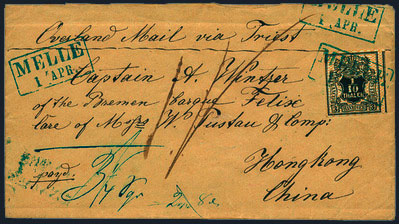 MELLE
1 APR.
Overland Mail via Triest
MELLE
1 APR.
Captain H. Wintzer
of the Bremen Barque Felix
Care of Mssrs W. Pustau & Comp:
Hongkong
China
payd.
1
10
THALER